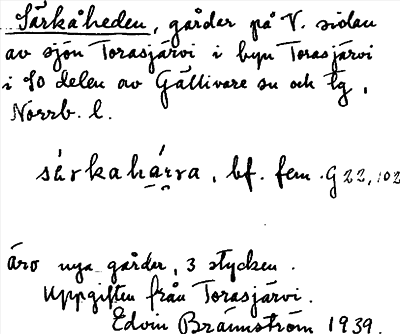 Särkåheden, gårdar på V. sidan
av sjön Torasjärvi i byn Torasjärvi
i SO delen av Gällivare sn och tg,
Norrb. l.
sárkahárra, bf. fem. G 22,102
äro nya gårdar, 3 stycken.
Uppgiften från Torasjärvi.
Edvin Brännström 1939.